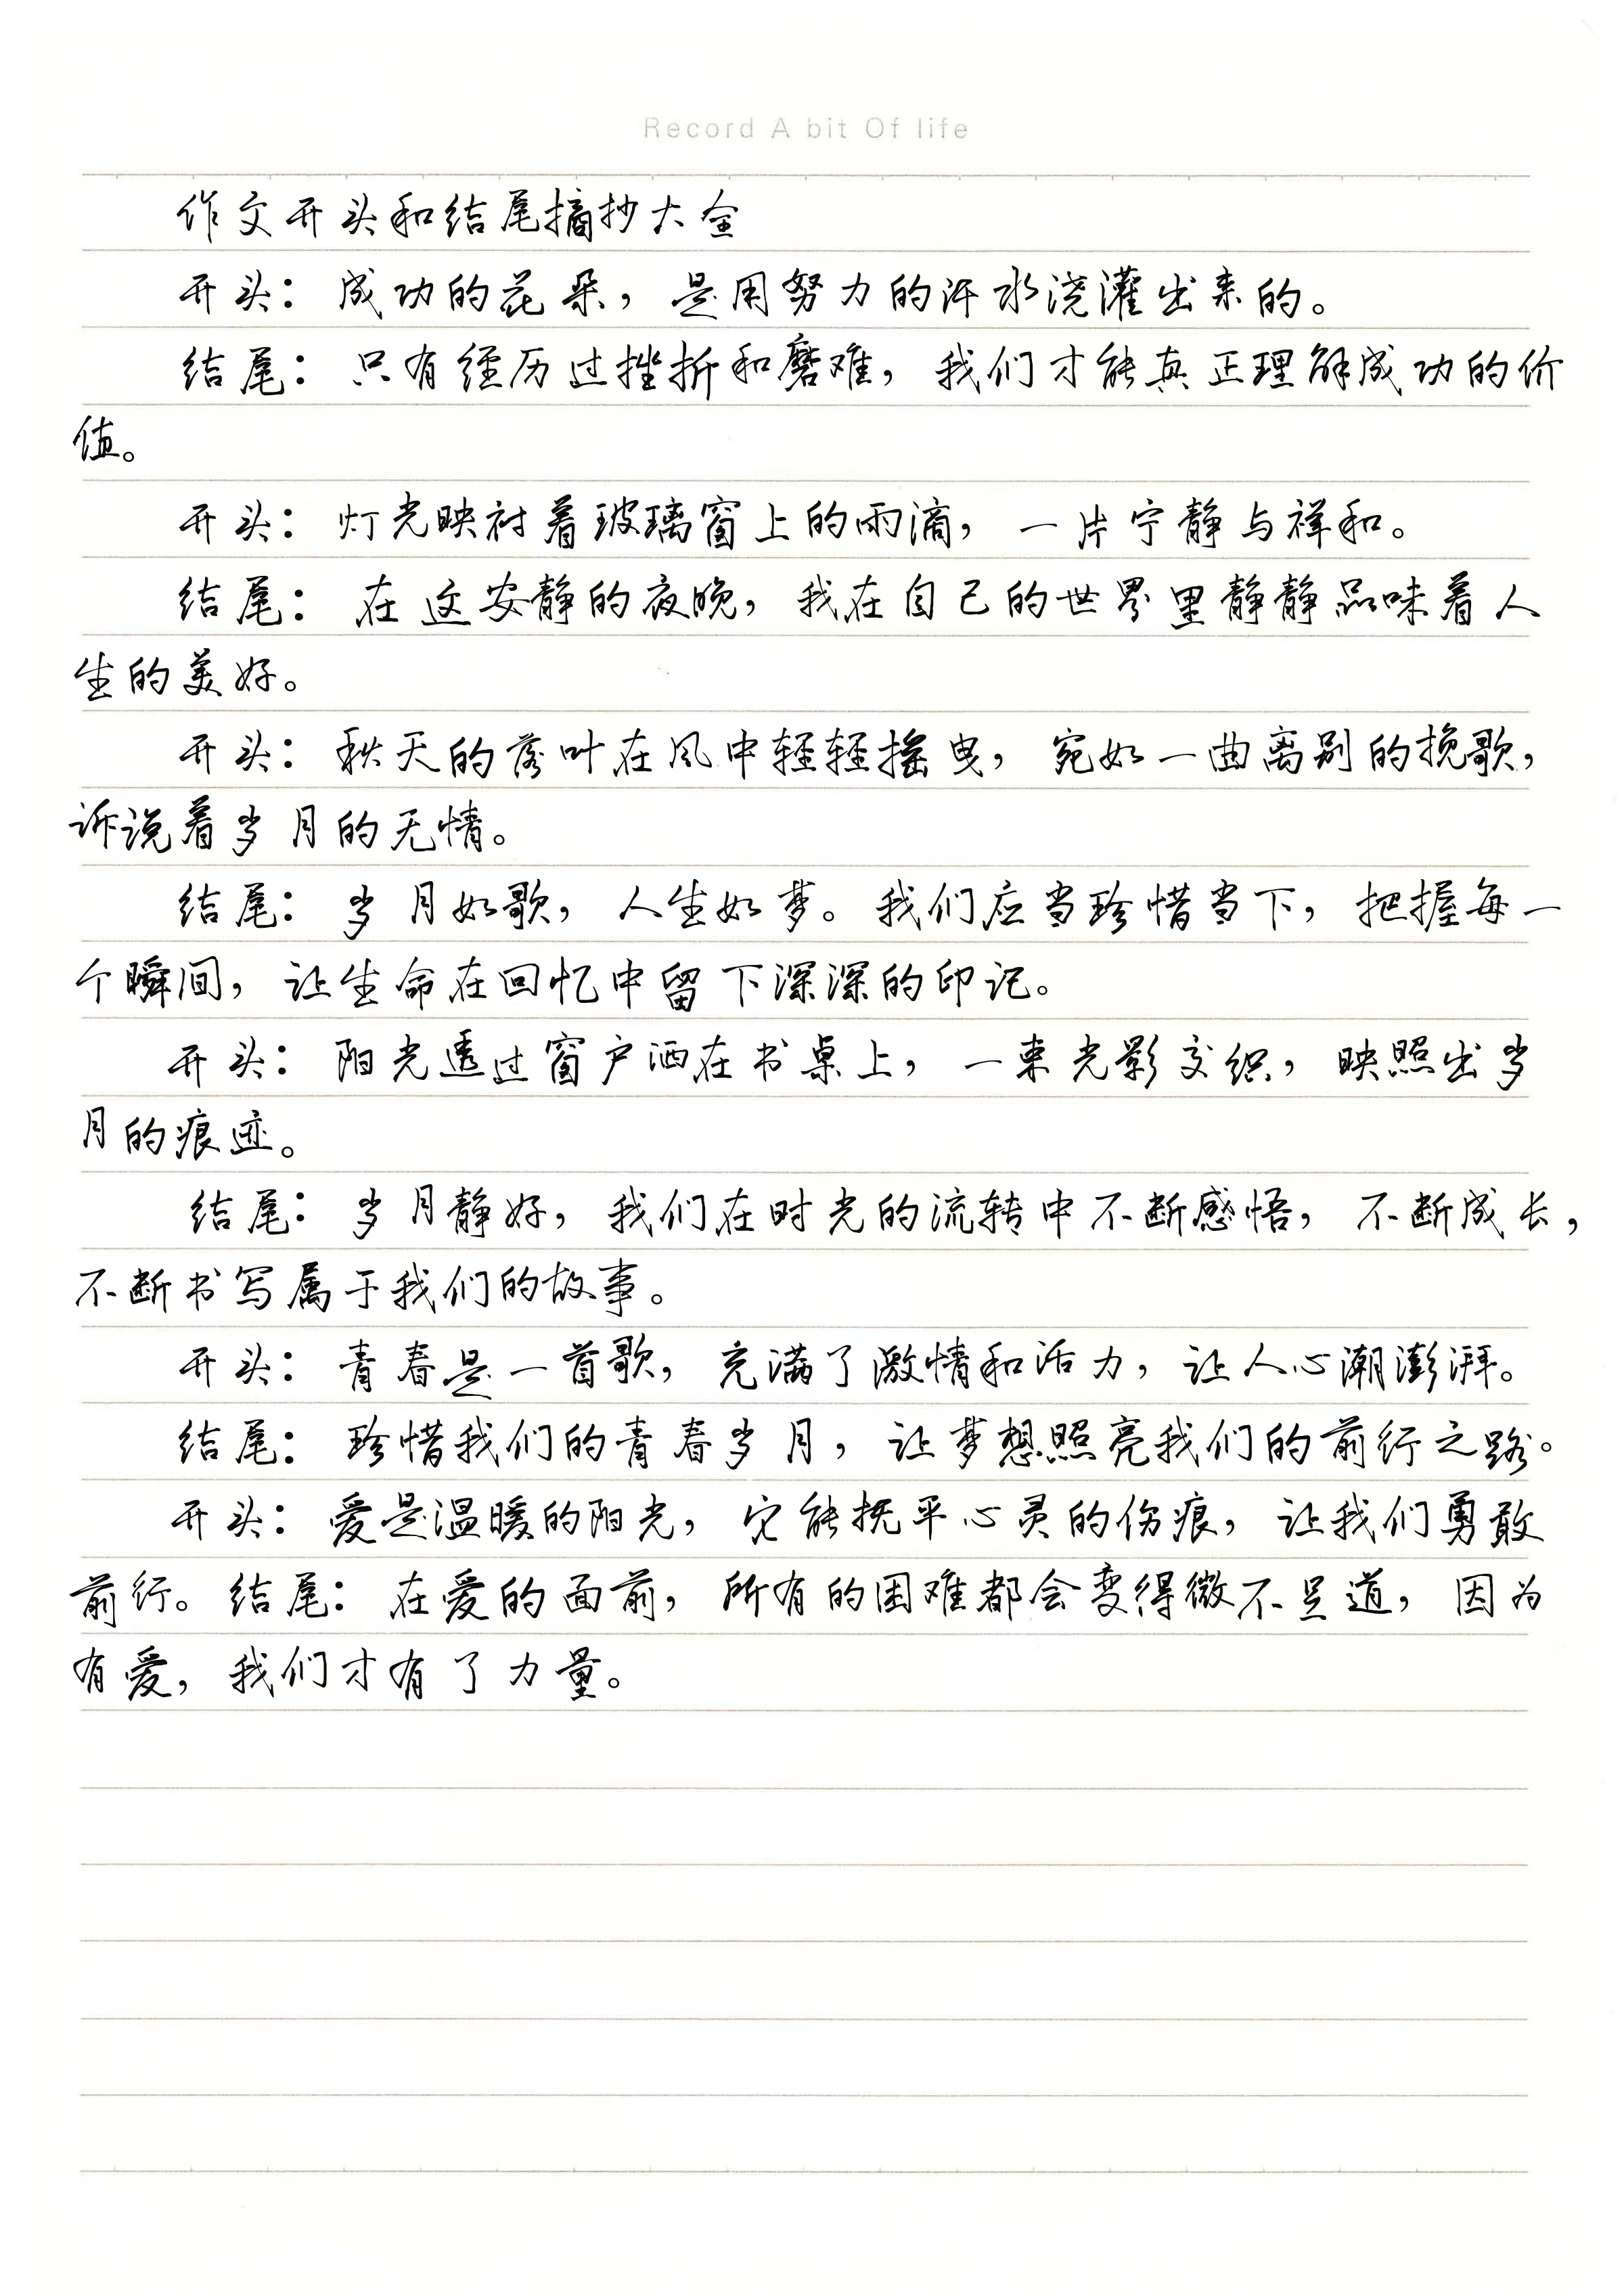 Record A bit Of life
作文开头和结尾摘抄大全
开头：成功的花朵，是用努力的汗水浇灌出来的。
结尾：只有经历过挫折和磨难，我们才能真正理解成功的价
值。
开头：灯光映衬着玻璃窗上的雨滴，一片宁静与祥和。
结尾：在这安静的夜晚，我在自己的世界里静静品味着人
生的美好。
开头：秋天的落叶在风中轻轻摇曳，宛如一曲离别的挽歌，
诉说着岁月的无情。
结尾：岁月如歌，人生如梦。我们应当珍惜当下，把握每一
个瞬间，让生命在回忆中留下深深的印记。
开头：阳光透过窗户洒在书桌上，一束光影交织，映照出岁
月的痕迹。
结尾：岁月静好，我们在时光的流转中不断感悟，不断成长，
不断书写属于我们的故事。
开头：青春是一首歌，充满了激情和活力，让人心潮澎湃。
结尾：珍惜我们的青春岁月，让梦想照亮我们的前行之路。
开头：爱是温暖的阳光，它能抚平心灵的伤痕，让我们勇敢
前行。结尾：在爱的面前，所有的困难都会变得微不足道，因为
有爱，我们才有了力量。